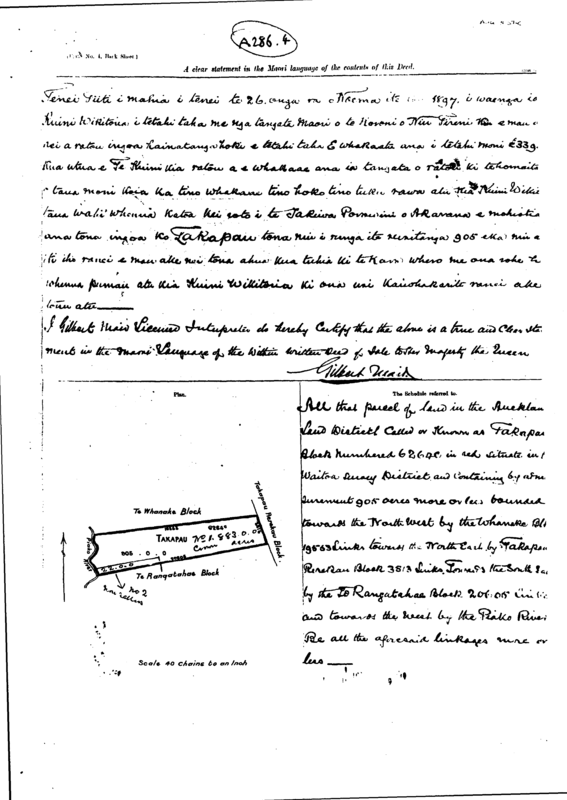 A286.4
No. 4, Back Sheet]
A clear statement in the Maori language of the contents of this Deed.
Tenei Tiiti i mahia i tenei te 26 o nga ra o Noema ite 1897. i waenga io
Kuini Wikitoria i tetahi taha me nga tangata Maori o te Koroni o Niu Tireni e mau
nei a ratou ingoa Kaimatanga hoki e tetahi taha E whakaatu ana i tetahi moni £339.
Kua utua e Te Kuini Kia ratou a e whakaae ana ia tangata o ratou ki tehomaita
taua moni Kaia Ka tino whakaae tino hoko tino tuku rawa atu Kia Kuini Wikit
taua wahi whenua Katoa Kei roto i te Takiwa o Akarana e mohiotia
ana tona ingoa Ko Takapau tona nui i runga ite ruritanga 905 eka nui
iti iho ranei e mau ake nei tona ahua Kua tuhia ki te Kara whero me ona rohe
whenua pumau atu Kia Kuini Wikitoria Ki ona uri Kaiwhakarite ranei ake
tonu atu
I Gilbert Mair Licensed Interpreter do hereby Certify that the above is a true and Clear State
ment in the Maori Language of the Within written Deed of Sale to Her Majesty the Queen
Gilbert Mair
Plan.
To Whanake Block
TAKAPAU No 1. 883.0.0
905.0.0
22.0.0
No 2
To Rangatahae Block
Takapau Rerekau Block
Piako River
Scale 40 chains to an Inch
The Schedule referred to.
All that parcel of land in the Aucklan
Land District Called or Known as Takapau
Block Numbered in red situate in
Waitoa Survey District and Containing by adme
surement 905 acres more or less bounded
towards the North West by the Whaneke Blo
19553 Links towards the North East by Takapau
Rerekau Block 3513 Links, Towards the South Ea
by the To Rangatahae Block 20605 links
and towards the West by the Piako River
Be all the aforesaid linkages more or
less